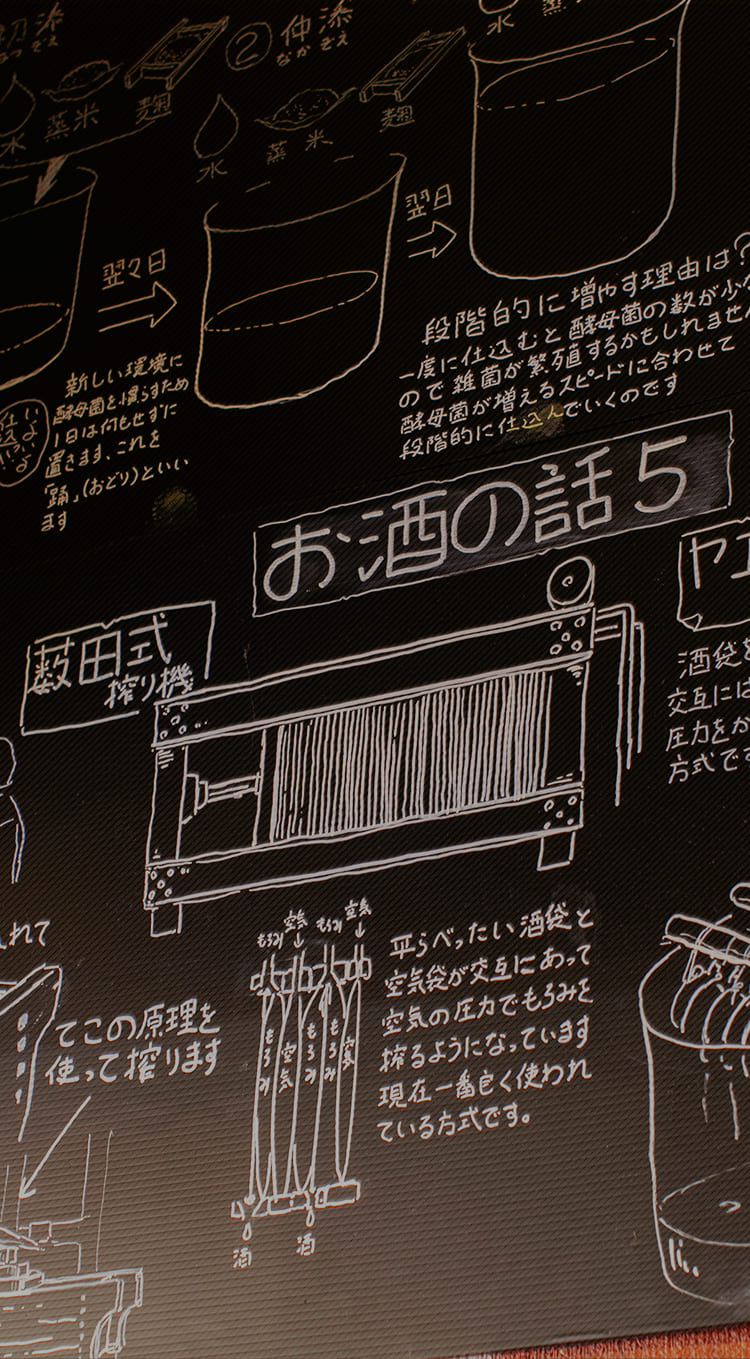 ② 仲添
なかぞえ
水 蒸米 麹
水 蒸米 麹
翌々日
翌日
新しい環境に
酵母菌を慣らすため
1日は何もせずに
置きます、これを
「踊」(おどり)といい
ます
段階的に増やす理由は?
一度に仕込むと酵母菌の数が少な
ので雑菌が繁殖するかもしれません
酵母菌が増えるスピードに合わせて
段階的に仕込んでいくのです
お酒の話5
薮田式
搾り機
酒袋を
交互には
圧力をか
方式で
れて
てこの原理を
使って搾ります
もろみ 空気 もろみ 空気
もろみ 空気 もろみ もろみ 空気
酒 酒
平らべったい酒袋と
空気袋が交互にあって
空気の圧力でもろみを
搾るようになっています
現在一番良く使われ
ている方式です。